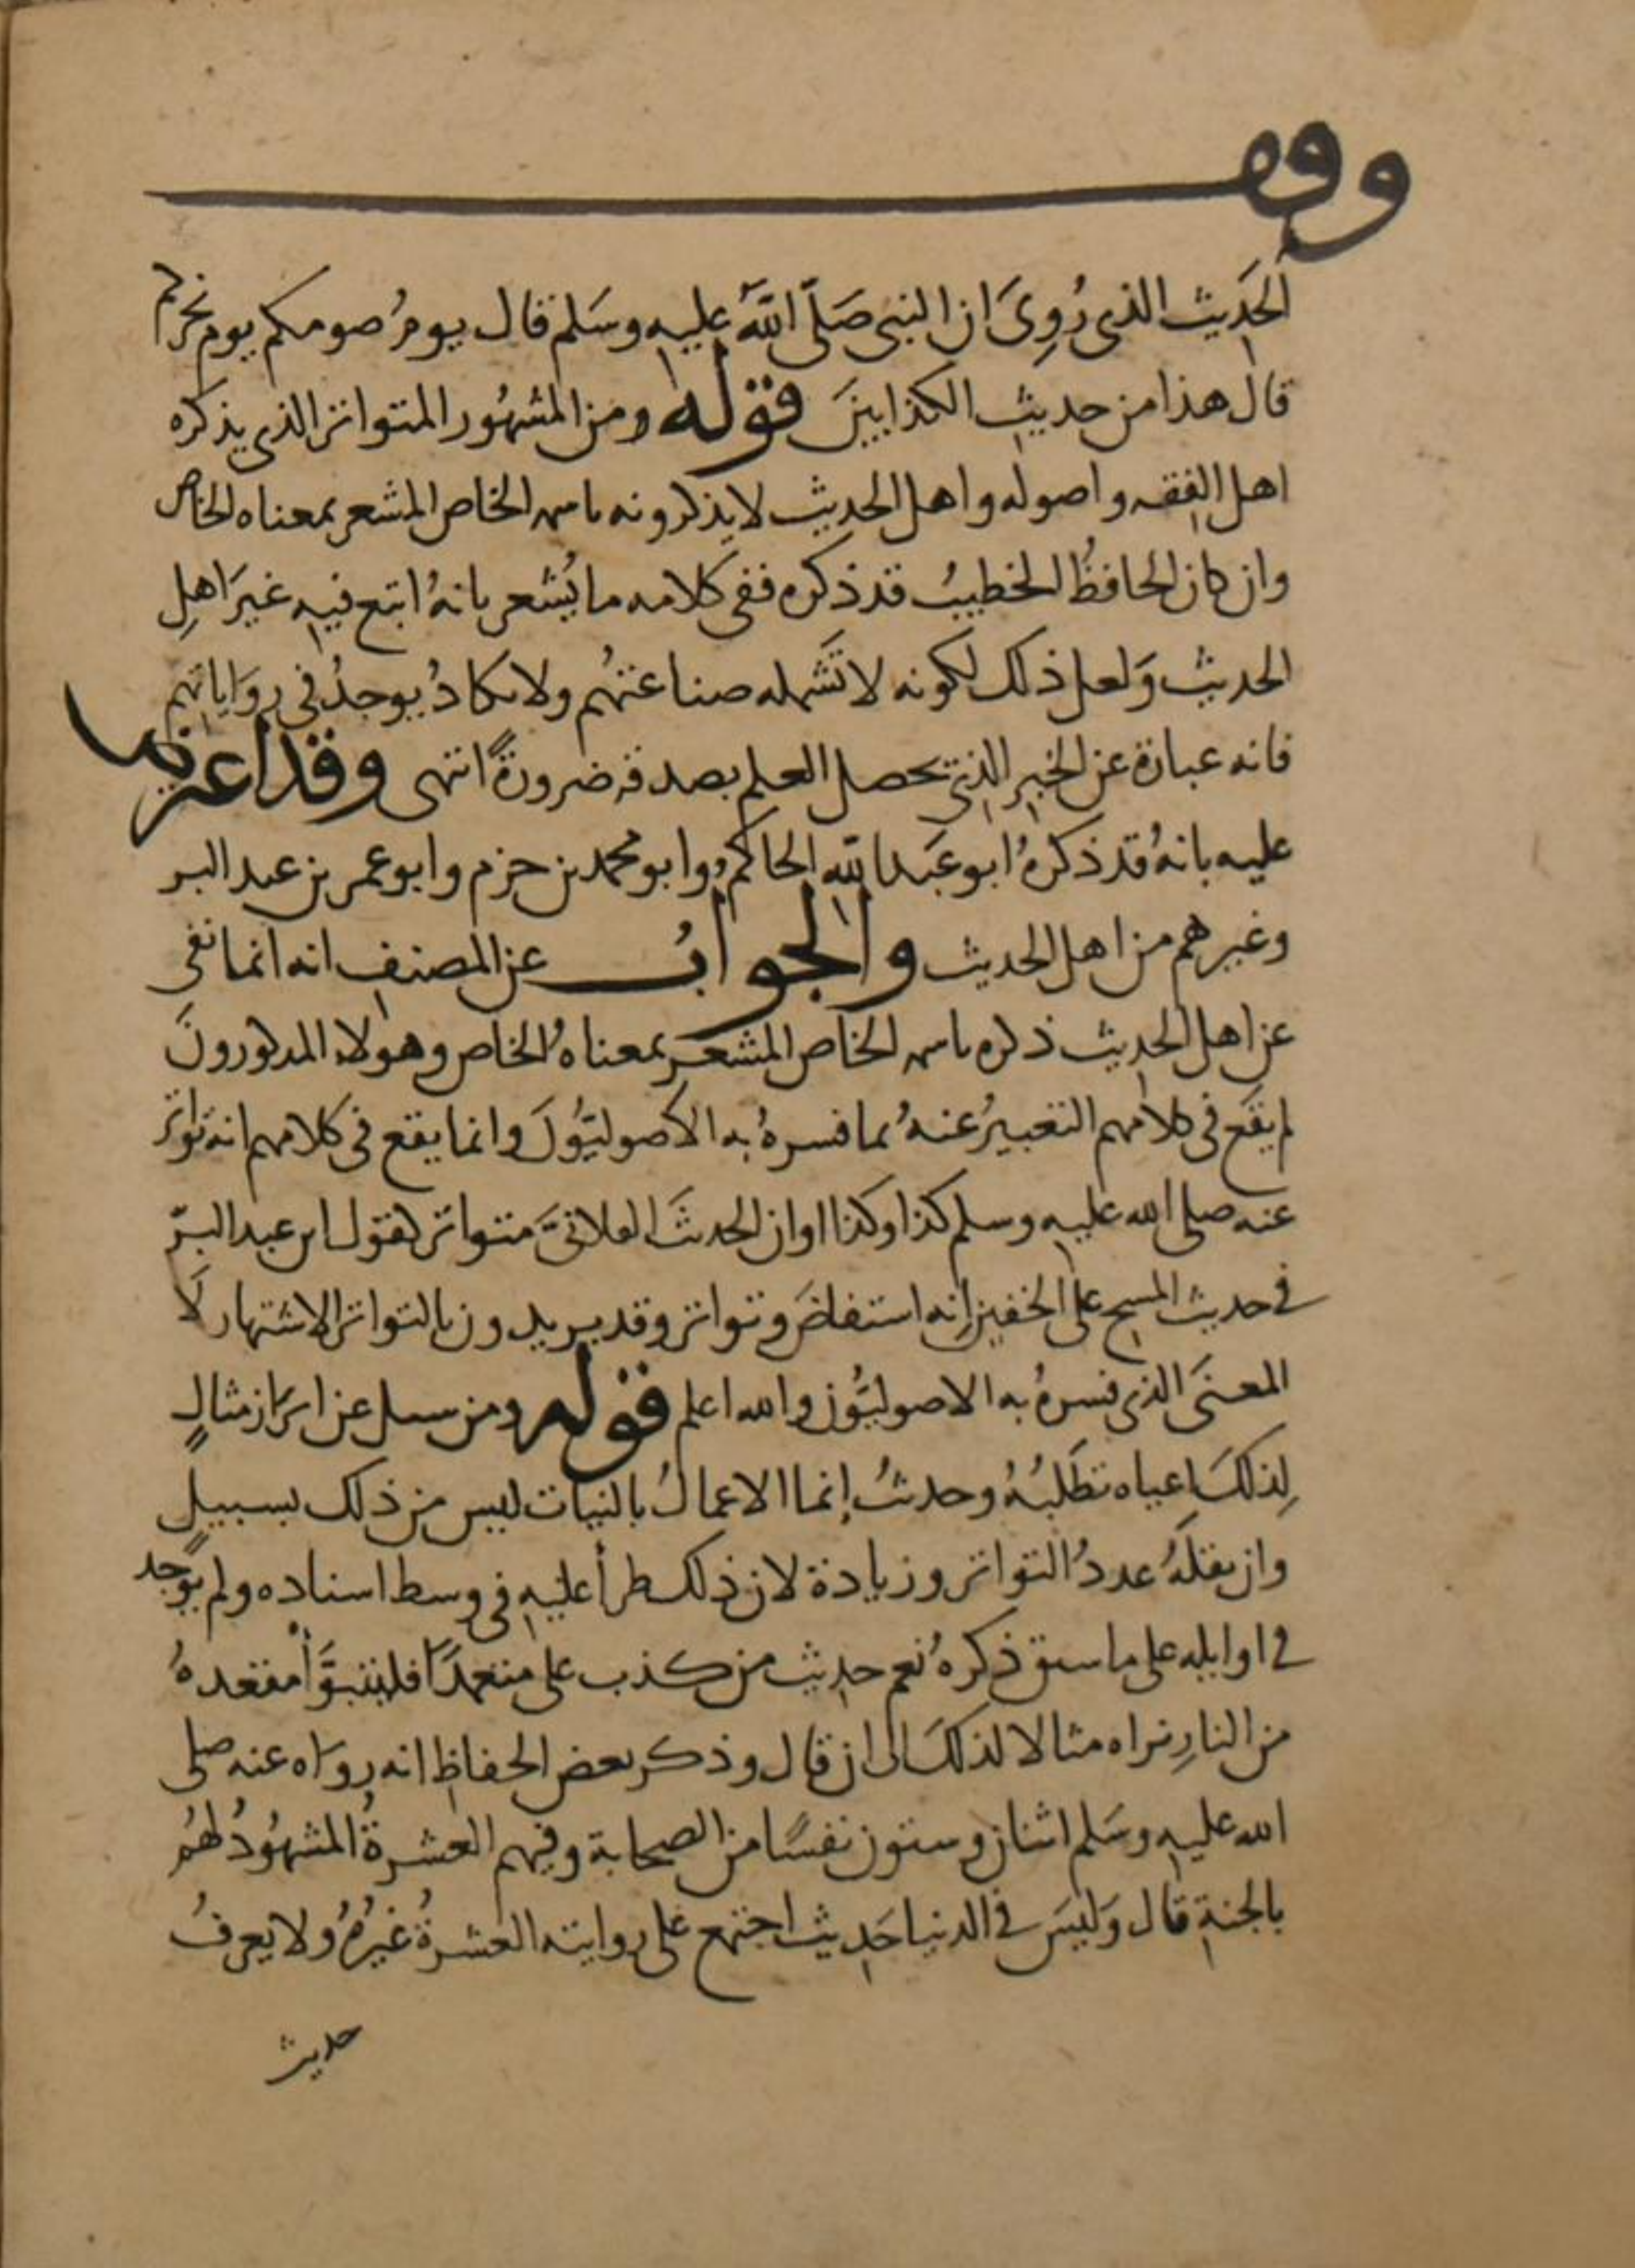 وقف
الحَدِيث الذي رُوِىَ ان النبي صَلّى اللهُ عليه وسَلم قال يومُ صومكم يوم نحركم
قال هذا من حديث الكذابينَ قوله ومن المشهُور المتواتر الذي يذكره
اهل الفقه واصوله واهل الحديث لا يذكرونه باسمه الخاص المشعر بمعناه الخاص
وان كان الحافظُ الخطيبُ قد ذكره ففي كلامه ما يُشعر بانهُ اتبع فيه غيرَ اهلِ
الحديث وَلعل ذلك لكونه لا تَشمله صناعتهُم ولا يكادُ يوجدُ في رِوَاياتهم
فانه عبارة عن الخبر الذي يحصل العلم بصدقه ضرورةً انتهى وقد اعترض
عليه بانهُ قد ذكرهُ ابو عَبد الله الحاكم وابو محمد بن حزم وابو عمر بن عبد البر
وغيرهم من اهل الحديث والجوابُ عن المصنف انه انما نفى
عن اهل الحديث ذكره باسمه الخاص المشعر بمعناهُ الخاص وهولاء المذكورونَ
لم يقَع في كلامهم التعبيرُ عنهُ بما فسرهُ به الاصوليُّونَ وانما يقع في كلامهم انه تواتر
عنه صلى الله عليه وسلم كذا وكذا او ان الحديثَ الفلانيَّ متواتر كقول ابن عبد البرّ
في حديث المسح على الخفين انه استفاضَ وتواتر وقد يريدون بالتواتر الاشتهار لَا
المعنَى الذي فسرهُ به الاصوليُّون والله اعلم قوله ومن سيل عن ابراز مثالٍ
لِذلكَ اعياه تطَلبُهُ وحديثُ إنما الاعمالُ بالنيات ليس من ذلك بسبيلٍ
وان نقلَهُ عددُ التواتر وزيادة لان ذلك طرأ عليه في وسط اسناده ولم يُوجد
في اوايله على ما سبق ذكرهُ نعم حديث من كذب على متعمدًا فليتبَوَّأ مقعدهُ
من النارِ نراه مثالا لذلكَ الى ان قال وذكر بعض الحفاظِ انه روَاه عنه صلى
الله عليه وسَلم اثنان وستون نفسًا من الصحابة وفيهم العشرةُ المشهُودُ لهُم
بالجنةِ قال وَليسَ في الدنيا حَدِيث اجتمع على روايته العشرةُ غيرُهُ ولا يعرفُ
حديث